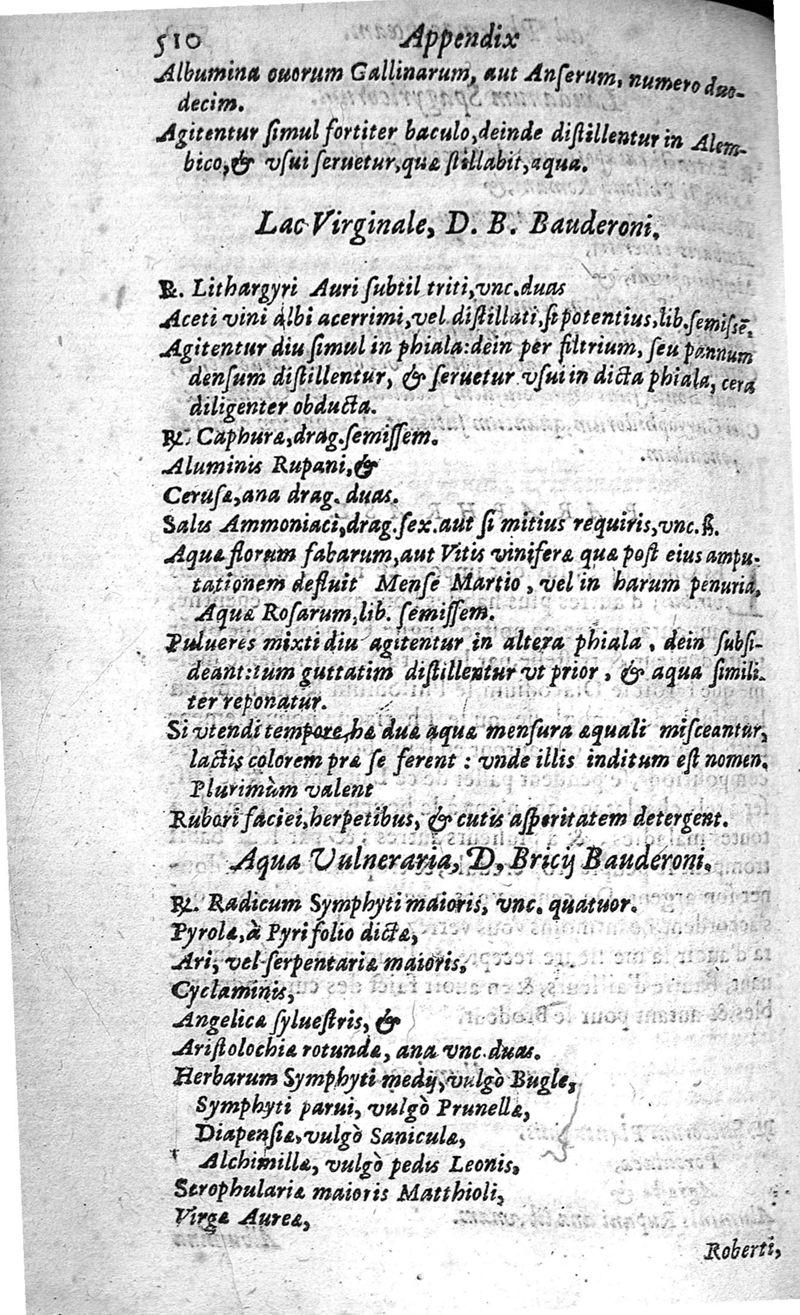 510 Appendix
Albumina ouorum Gallinarum, aut Anserum, numero duo-
decim.
Agitentur simul fortiter baculo, deinde distillentur in Alem-
bico, & vsui seruetur, quæ stillabit, aqua.
Lac Virginale, D. B. Bauderoni.
℞. Lithargyri Auri subtil triti, vnc. duas
Aceti vini albi acerrimi, vel distillati, si potentius, lib. semissē.
Agitentur diu simul in phiala: dein per filtrium, seu pannum
densum distillentur, & seruetur vsui in dicta phiala, cera
diligenter obducta.
℞. Caphuræ, drag. semissem.
Aluminis Rupani, &
Cerusæ, ana drag. duas.
Salis Ammoniaci, drag. sex. aut si mitius requiris, vnc. ß.
Aquæ florum fabarum, aut Vitis viniferæ quæ post eius ampu-
tationem defluit Mense Martio, vel in harum penuria,
Aquæ Rosarum, lib. semissem.
Pulueres mixti diu agitentur in altera phiala, dein subsi-
deant: tum guttatim distillentur vt prior, & aqua simili-
ter reponatur.
Si vtendi tempore hæ duæ aquæ mensura æquali misceantur,
lactis colorem præ se ferent: vnde illis inditum est nomen.
Plurimùm valent
Rubori faciei, herpetibus, & cutis asperitatem detergent.
Aqua Vulneraria, D, Bricij Bauderoni.
℞. Radicum Symphyti maioris, vnc. quatuor.
Pyrolæ, à Pyri folio dictæ,
Ari, vel serpentariæ maioris,
Cyclaminis,
Angelicæ syluestris, &
Aristolochiæ rotundæ, ana vnc. duas.
Herbarum Symphyti medij, vulgò Bugle,
Symphyti parui, vulgò Prunellæ,
Diapensiæ, vulgò Saniculæ,
Alchimillæ, vulgò pedis Leonis,
Scrophulariæ maioris Matthioli,
Virgæ Aureæ,
Roberti,